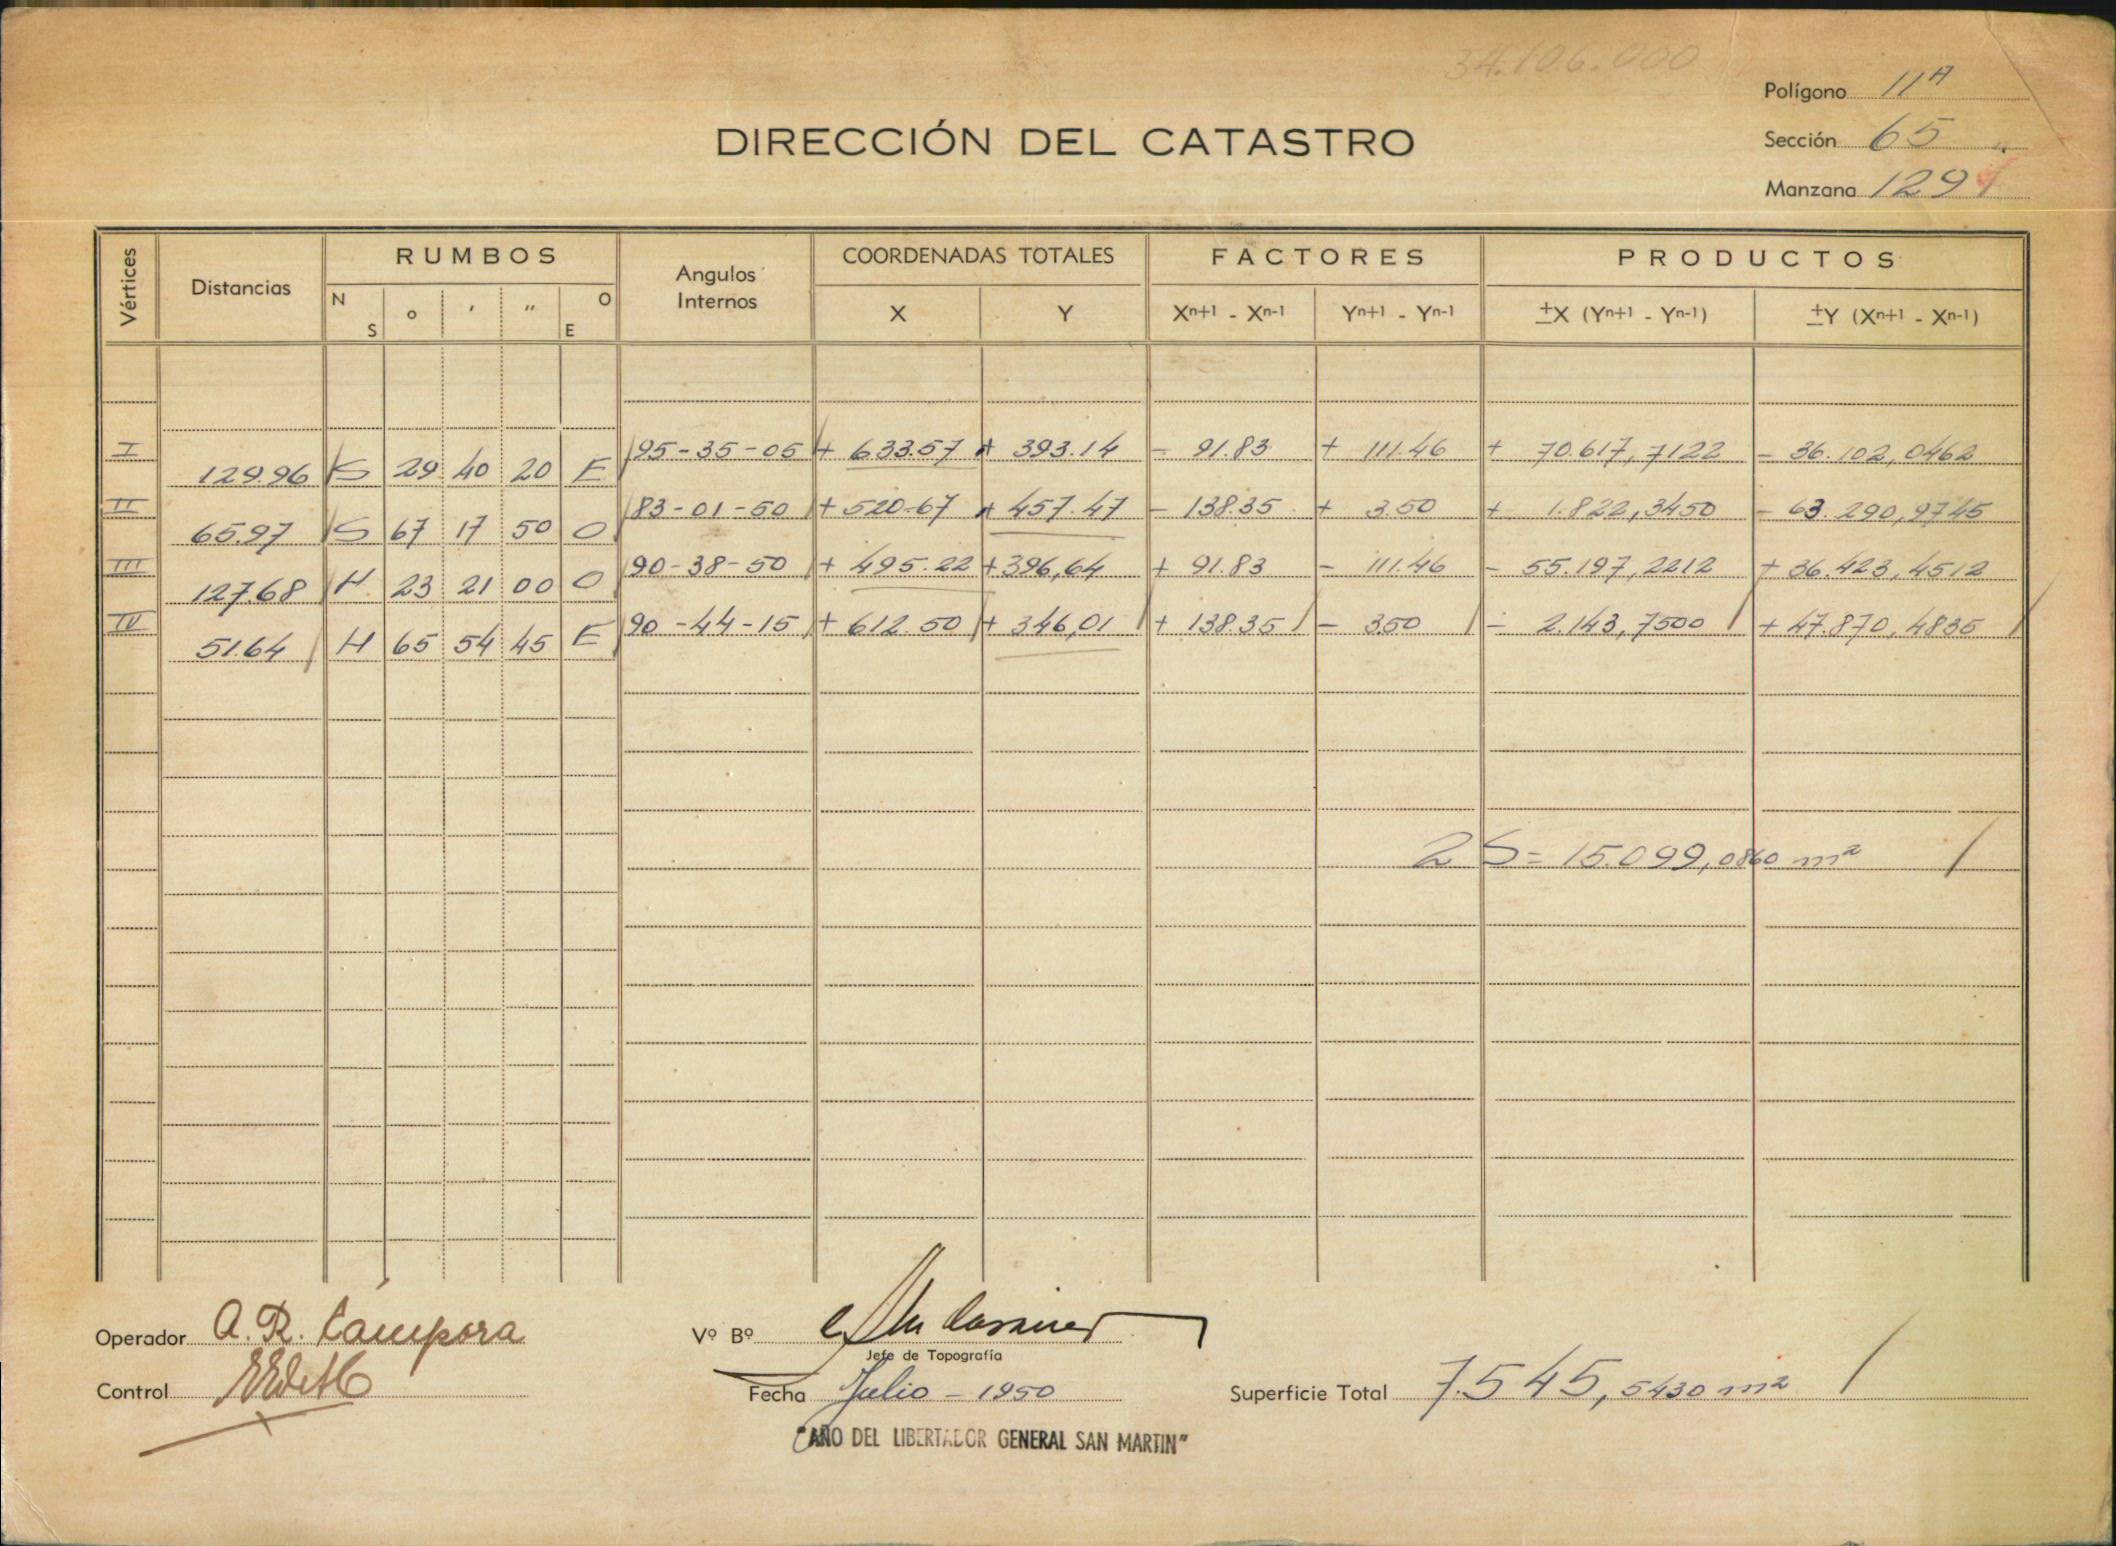 34.106.000
Polígono 11A
DIRECCIÓN DEL CATASTRO
Sección 65
Manzana 129
Vértices Distancias RUMBOS Angulos Internos COORDENADAS TOTALES FACTORES PRODUCTOS
N S ° ' " O E X Y Xn+1 - Xn-1 Yn+1 - Yn-1 ±X (Yn+1 - Yn-1) ±Y (Xn+1 - Xn-1)
I 95-35-05 + 633.57 + 393.14 - 91.83 + 111.46 + 70.617,7122 - 36.102,0462
129.96 S 29 40 20 E
II 83-01-50 + 520.67 + 457.47 - 138.35 + 3.50 + 1.822,3450 - 63.290,9745
65.97 S 67 17 50 O
III 90-38-50 + 495.22 + 396,64 + 91.83 - 111.46 - 55.197,2212 + 36.423,4512
127.68 N 23 21 00 O
IV 90-44-15 + 612.50 + 346,01 + 138.35 - 3.50 - 2.143,7500 + 47.870,4835
51.64 N 65 54 45 E
2 S = 15.099,0860 m²
Operador A. R. Cámpora
Vº Bº
Jefe de Topografía
Control
Fecha Julio - 1950
Superficie Total 7.545,5430 m²
"AÑO DEL LIBERTADOR GENERAL SAN MARTIN"